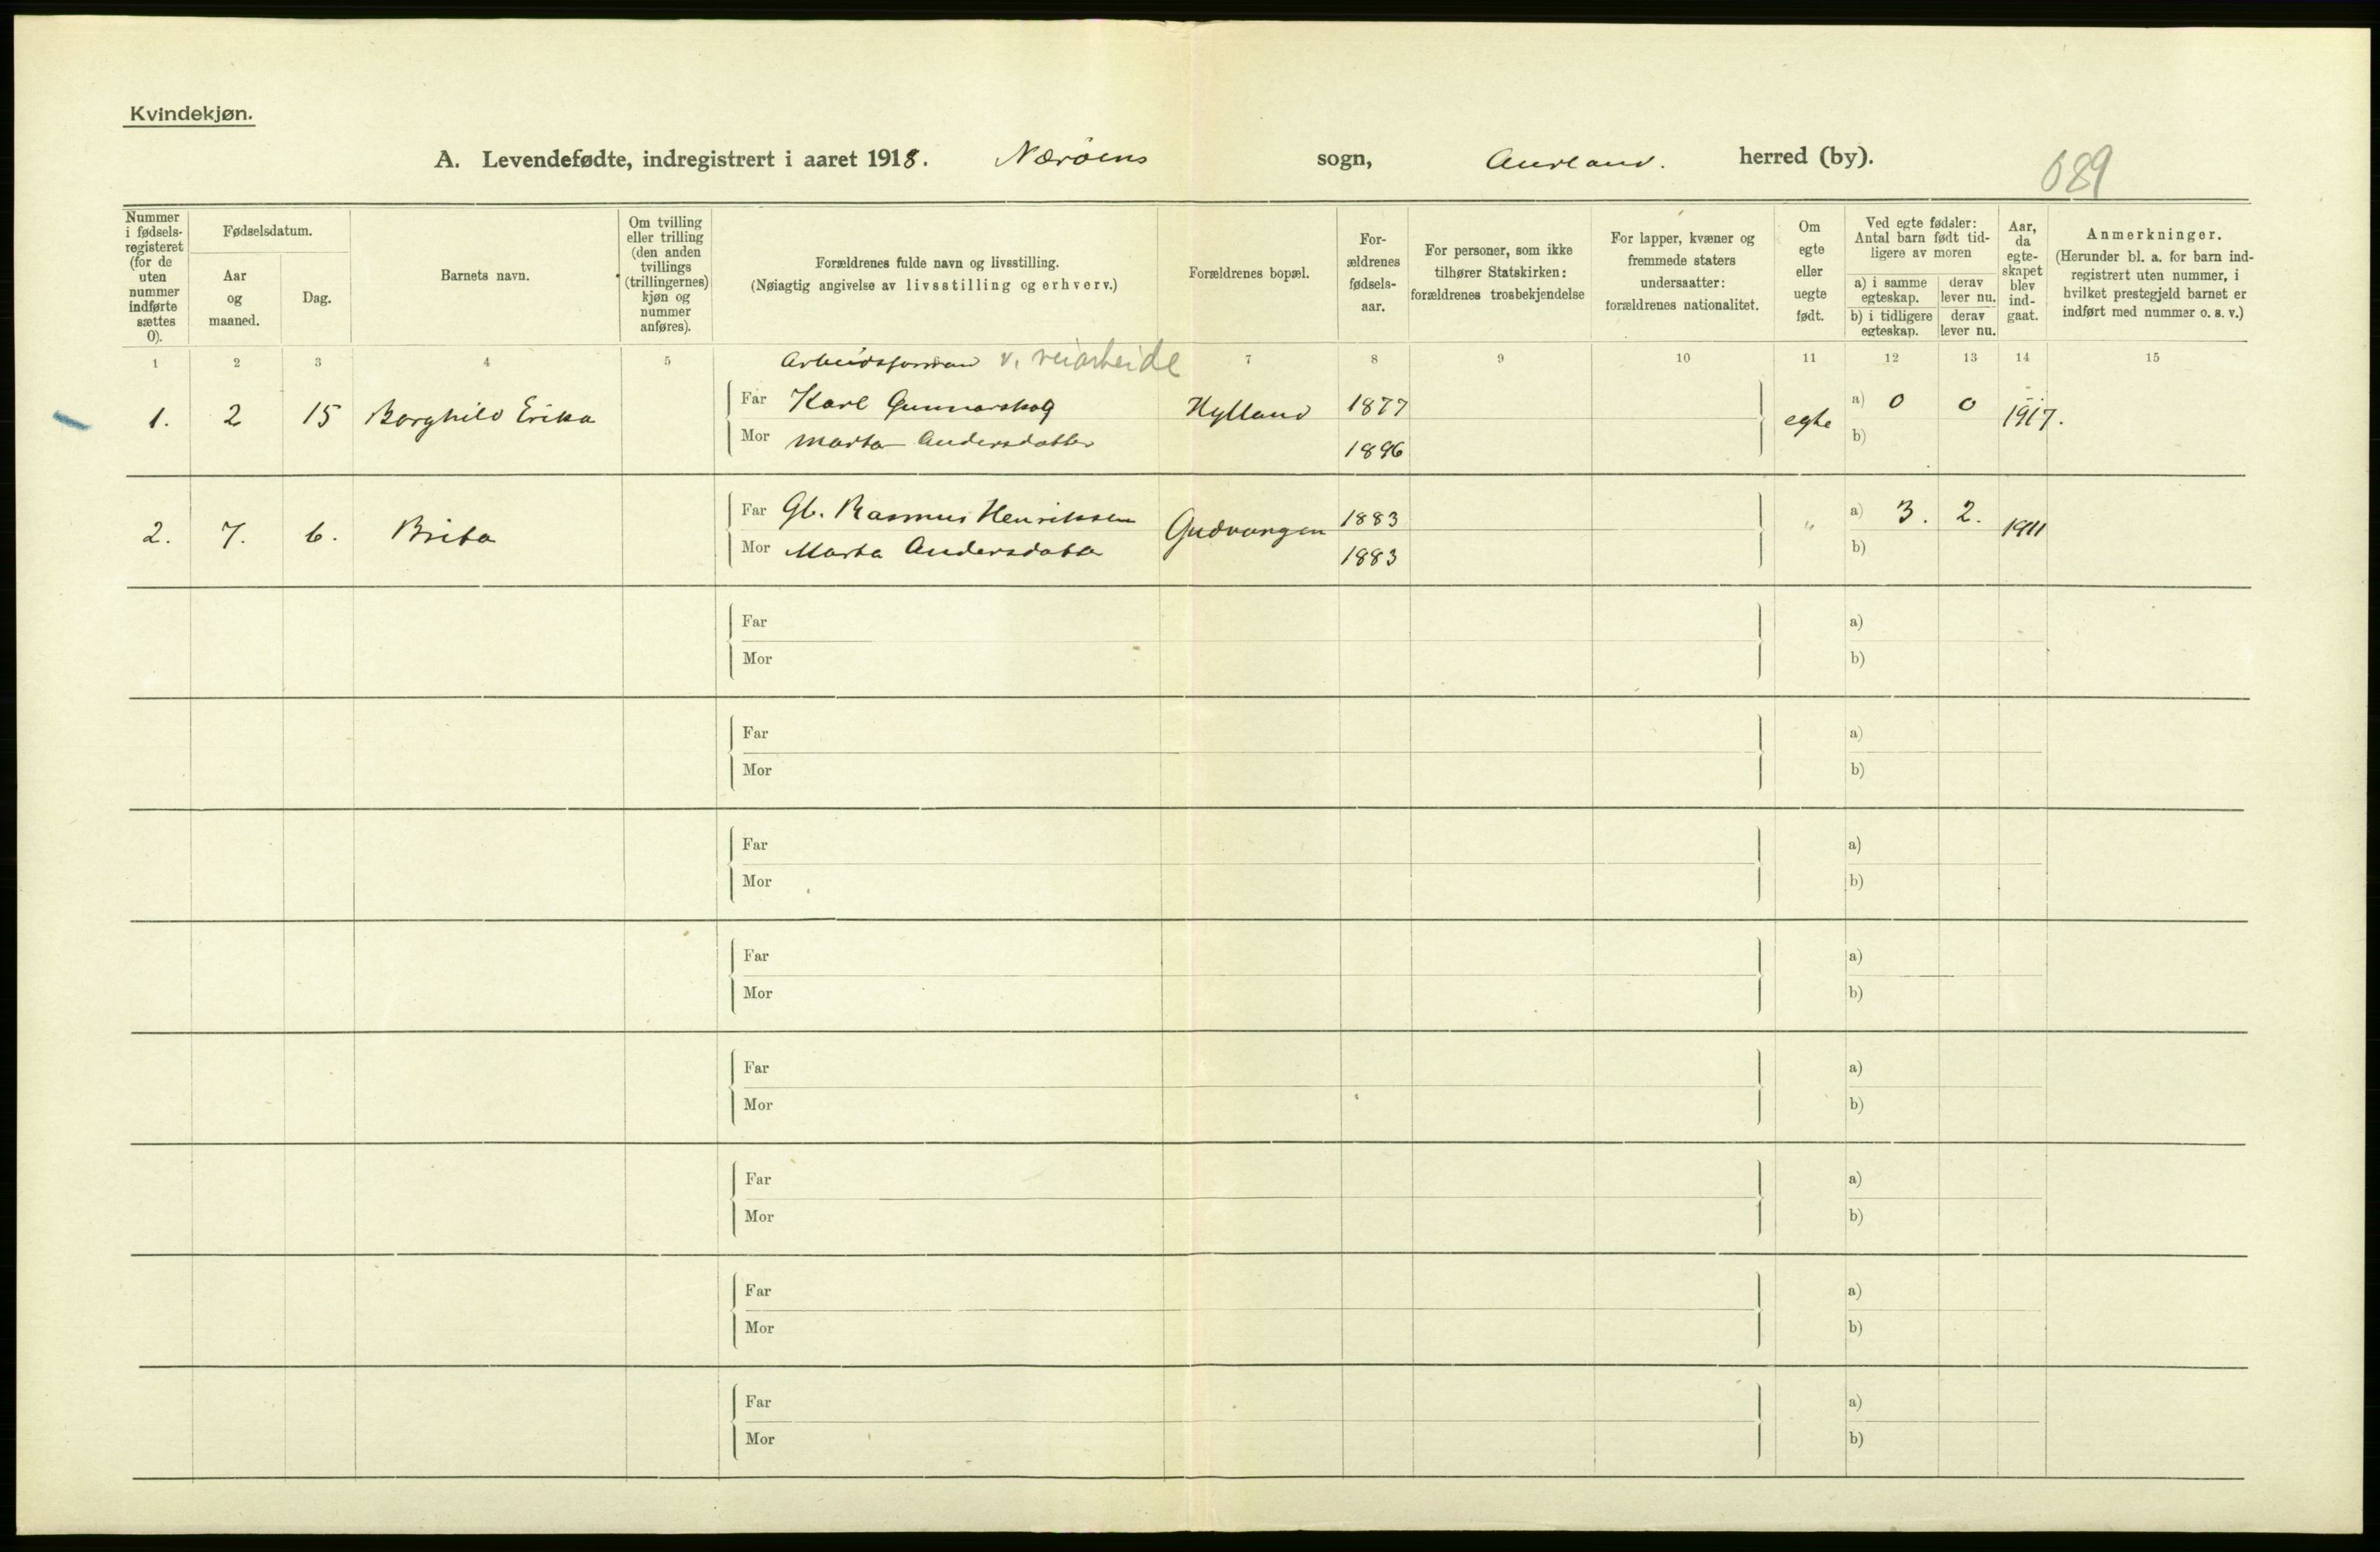 Kvindekjøn.
A. Levendefødte, indregistrert i aaret 1918. Nærøens sogn, Aurland. herred (by).
689
Nummer i fødsels-registeret (for de uten nummer indførte sættes 0).
Fødselsdatum.
Aar og maaned.
Dag.
Barnets navn.
Om tvilling eller trilling (den anden tvillings (trillingernes) kjøn og nummer anføres).
Forældrenes fulde navn og livsstilling.
(Nøiagtig angivelse av livsstilling og erhverv.)
Forældrenes bopæl.
For-ældrenes fødsels-aar.
For personer, som ikke tilhører Statskirken: forældrenes trosbekjendelse
For lapper, kvæner og fremmede staters undersaatter: forældrenes nationalitet.
Om egte eller uegte født.
Ved egte fødsler: Antal barn født tid-ligere av moren
a) i samme egteskap.
derav lever nu.
b) i tidligere egteskap.
derav lever nu.
Aar, da egte-skapet blev ind-gaat.
Anmerkninger.
(Herunder bl. a. for barn ind-registrert uten nummer, i hvilket prestegjeld barnet er indført med nummer o. s. v.)
1 2 3 4 5 7 8 9 10 11 12 13 14 15
Arbeidsforman v. veiarbeide
1. 2 15 Borghild Erika Far Karl Gunnarskog Hylland 1877 egte a) 0 0 1917.
Mor Marta Andersdatter 1896 b)
2. 7. 6. Brita Far Gb. Rasmus Henriksen Gudvangen 1883 " a) 3. 2. 1911
Mor Marta Andersdatter 1883 b)
Far a)
Mor b)
Far a)
Mor b)
Far a)
Mor b)
Far a)
Mor b)
Far a)
Mor b)
Far a)
Mor b)
Far a)
Mor b)
Far a)
Mor b)